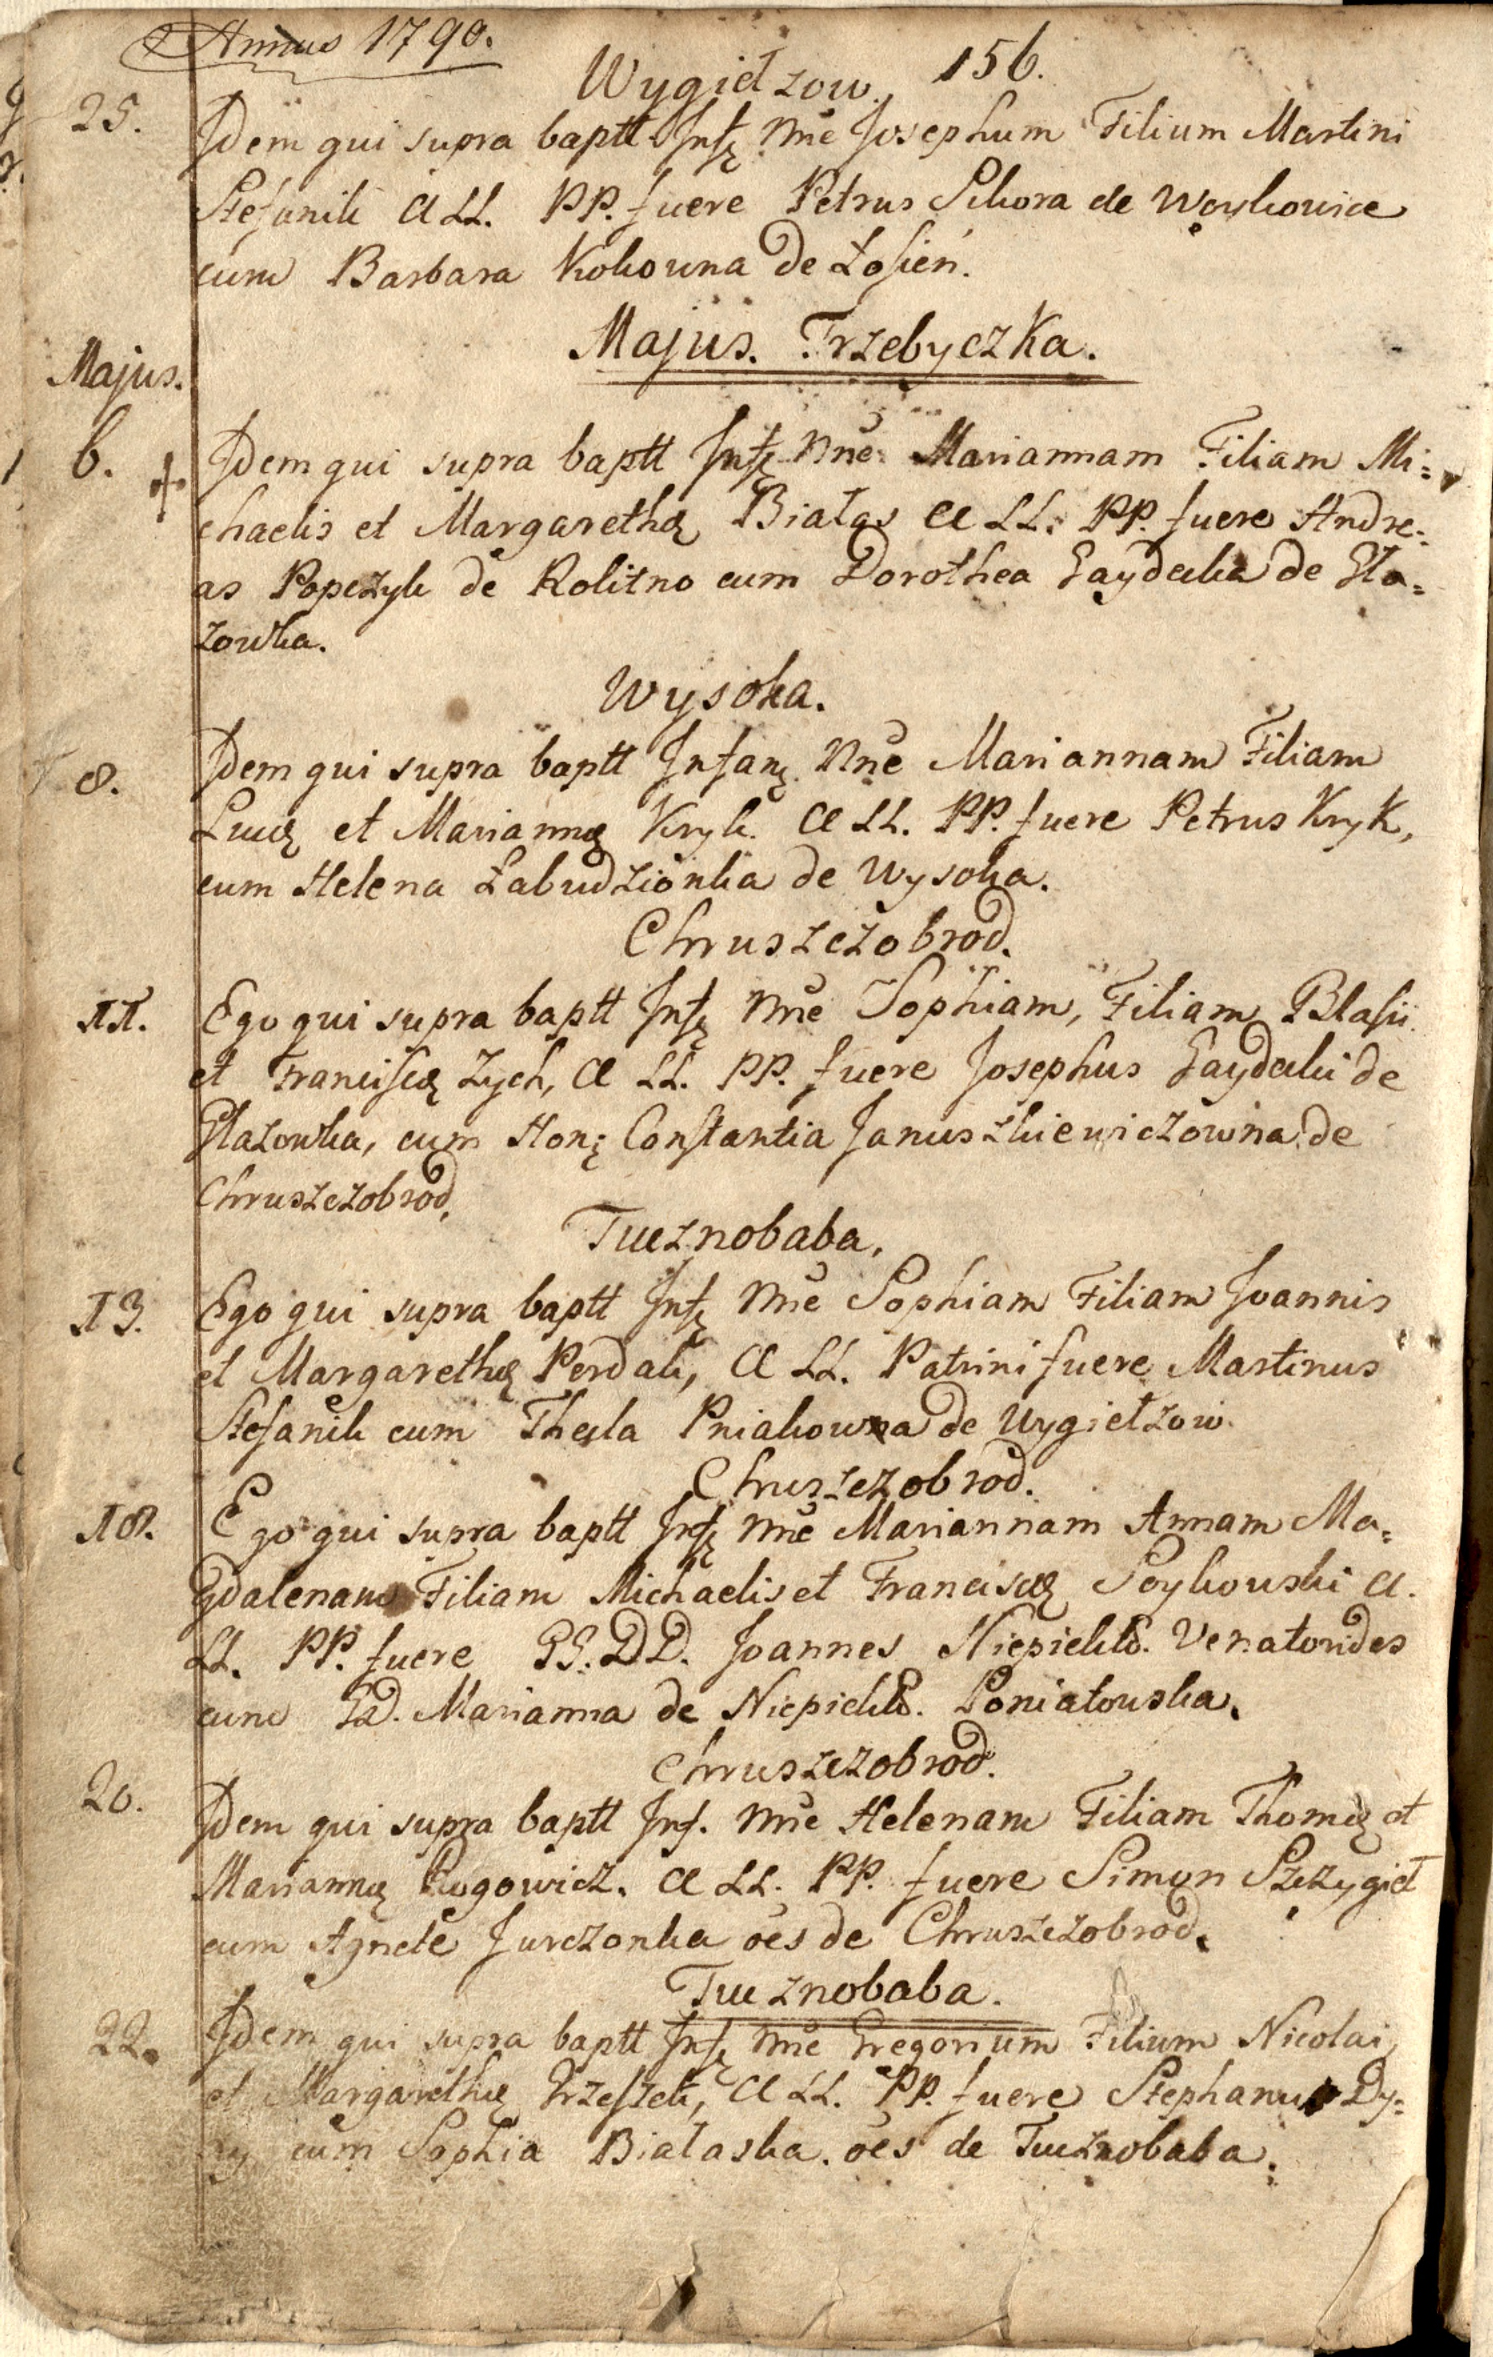 Annus 1790.
Wygiełzow. 156.
25. Idem qui supra baptt Infę Nne Josephum Filium Martini
Stefanik C LL. PP. fuere Petrus Sikora de Woykowice
cum Barbara Kokowna de Łosień.
Majus. Trzebyczka.
Majus.
6. Idem qui supra baptt Infę Nne Mariannam Filiam Mi=
chaelis et Margarethę Białas C LL. PP. fuere Andre=
as Popczyk de Rokitno cum Dorothea Gaydecka de Gła=
zowka.
Wysoka.
8. Idem qui supra baptt Infanę Nne Mariannam Filiam
Lucę et Mariannę Kryk. C LL. PP. fuere Petrus Kryk,
cum Helena Łabudzionka de Wysoka.
Chruszczobrod.
11. Ego qui supra baptt Infę Nne Sophiam, Filiam Blasii
et Franciscę Zych, C LL. PP. fuere Josephus Gaydecki de
Głazowka, cum Honę Constantia Januszkiewiczowna de
Chruszczobrod.
Tucznobaba.
13. Ego qui supra baptt Infę Nne Sophiam Filiam Joannis
et Margarethę Perdak, C LL. Patrini fuere Martinus
Stefanik cum Thecla Pniakowna de Wygiełzow.
Chruszczobrod.
18. Ego qui supra baptt Infę Nne Mariannam Annam Ma=
gdalenam Filiam Michaelis et Franciscę Soykowski C.
LL. PP. fuere GG. DD. Joannes Venatorides
cum GD. Marianna de Poniatowska.
Chruszczobrod.
20. Idem qui supra baptt Inf. Nne Helenam Filiam Thomę et
Mariannę Rogowicz. C LL. PP. fuere Simon Szczygieł
cum Agnete Jurczonka oes de Chruszczobrod.
Tucznobaba.
22. Idem qui supra baptt Infę Nne Gregorium Filium Nicolai
et Margarethę Grzeszek, C LL. PP. fuere Stephanus
cum Sophia Białaska. oes de Tucznobaba.